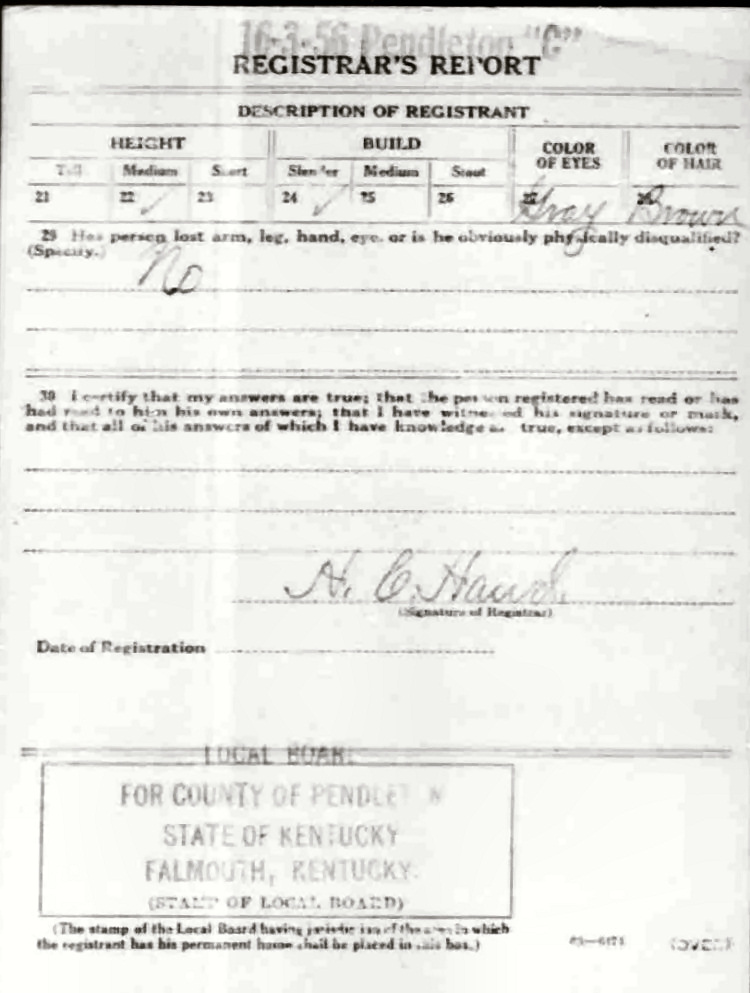 16-3-56 Pendleton "C"
REGISTRAR'S REPORT
DESCRIPTION OF REGISTRANT
HEIGHT BUILD COLOR OF EYES COLOR OF HAIR
Tall Medium Short Slender Medium Stout
21 22 ✓ 23 24 ✓ 25 26 27 Gray 28 Brown
29 Has person lost arm, leg, hand, eye, or is he obviously physically disqualified?
(Specify.) No
30 I certify that my answers are true; that the person registered has read or has
had read to him his own answers; that I have witnessed his signature or mark,
and that all of his answers of which I have knowledge are true, except as follows:
H. C.
(Signature of Registrar)
Date of Registration
LOCAL BOARD
FOR COUNTY OF PENDLETON
STATE OF KENTUCKY
FALMOUTH, KENTUCKY.
(STAMP OF LOCAL BOARD)
(The stamp of the Local Board having jurisdiction of the area in which
the registrant has his permanent home shall be placed in this box.)
(OVER)